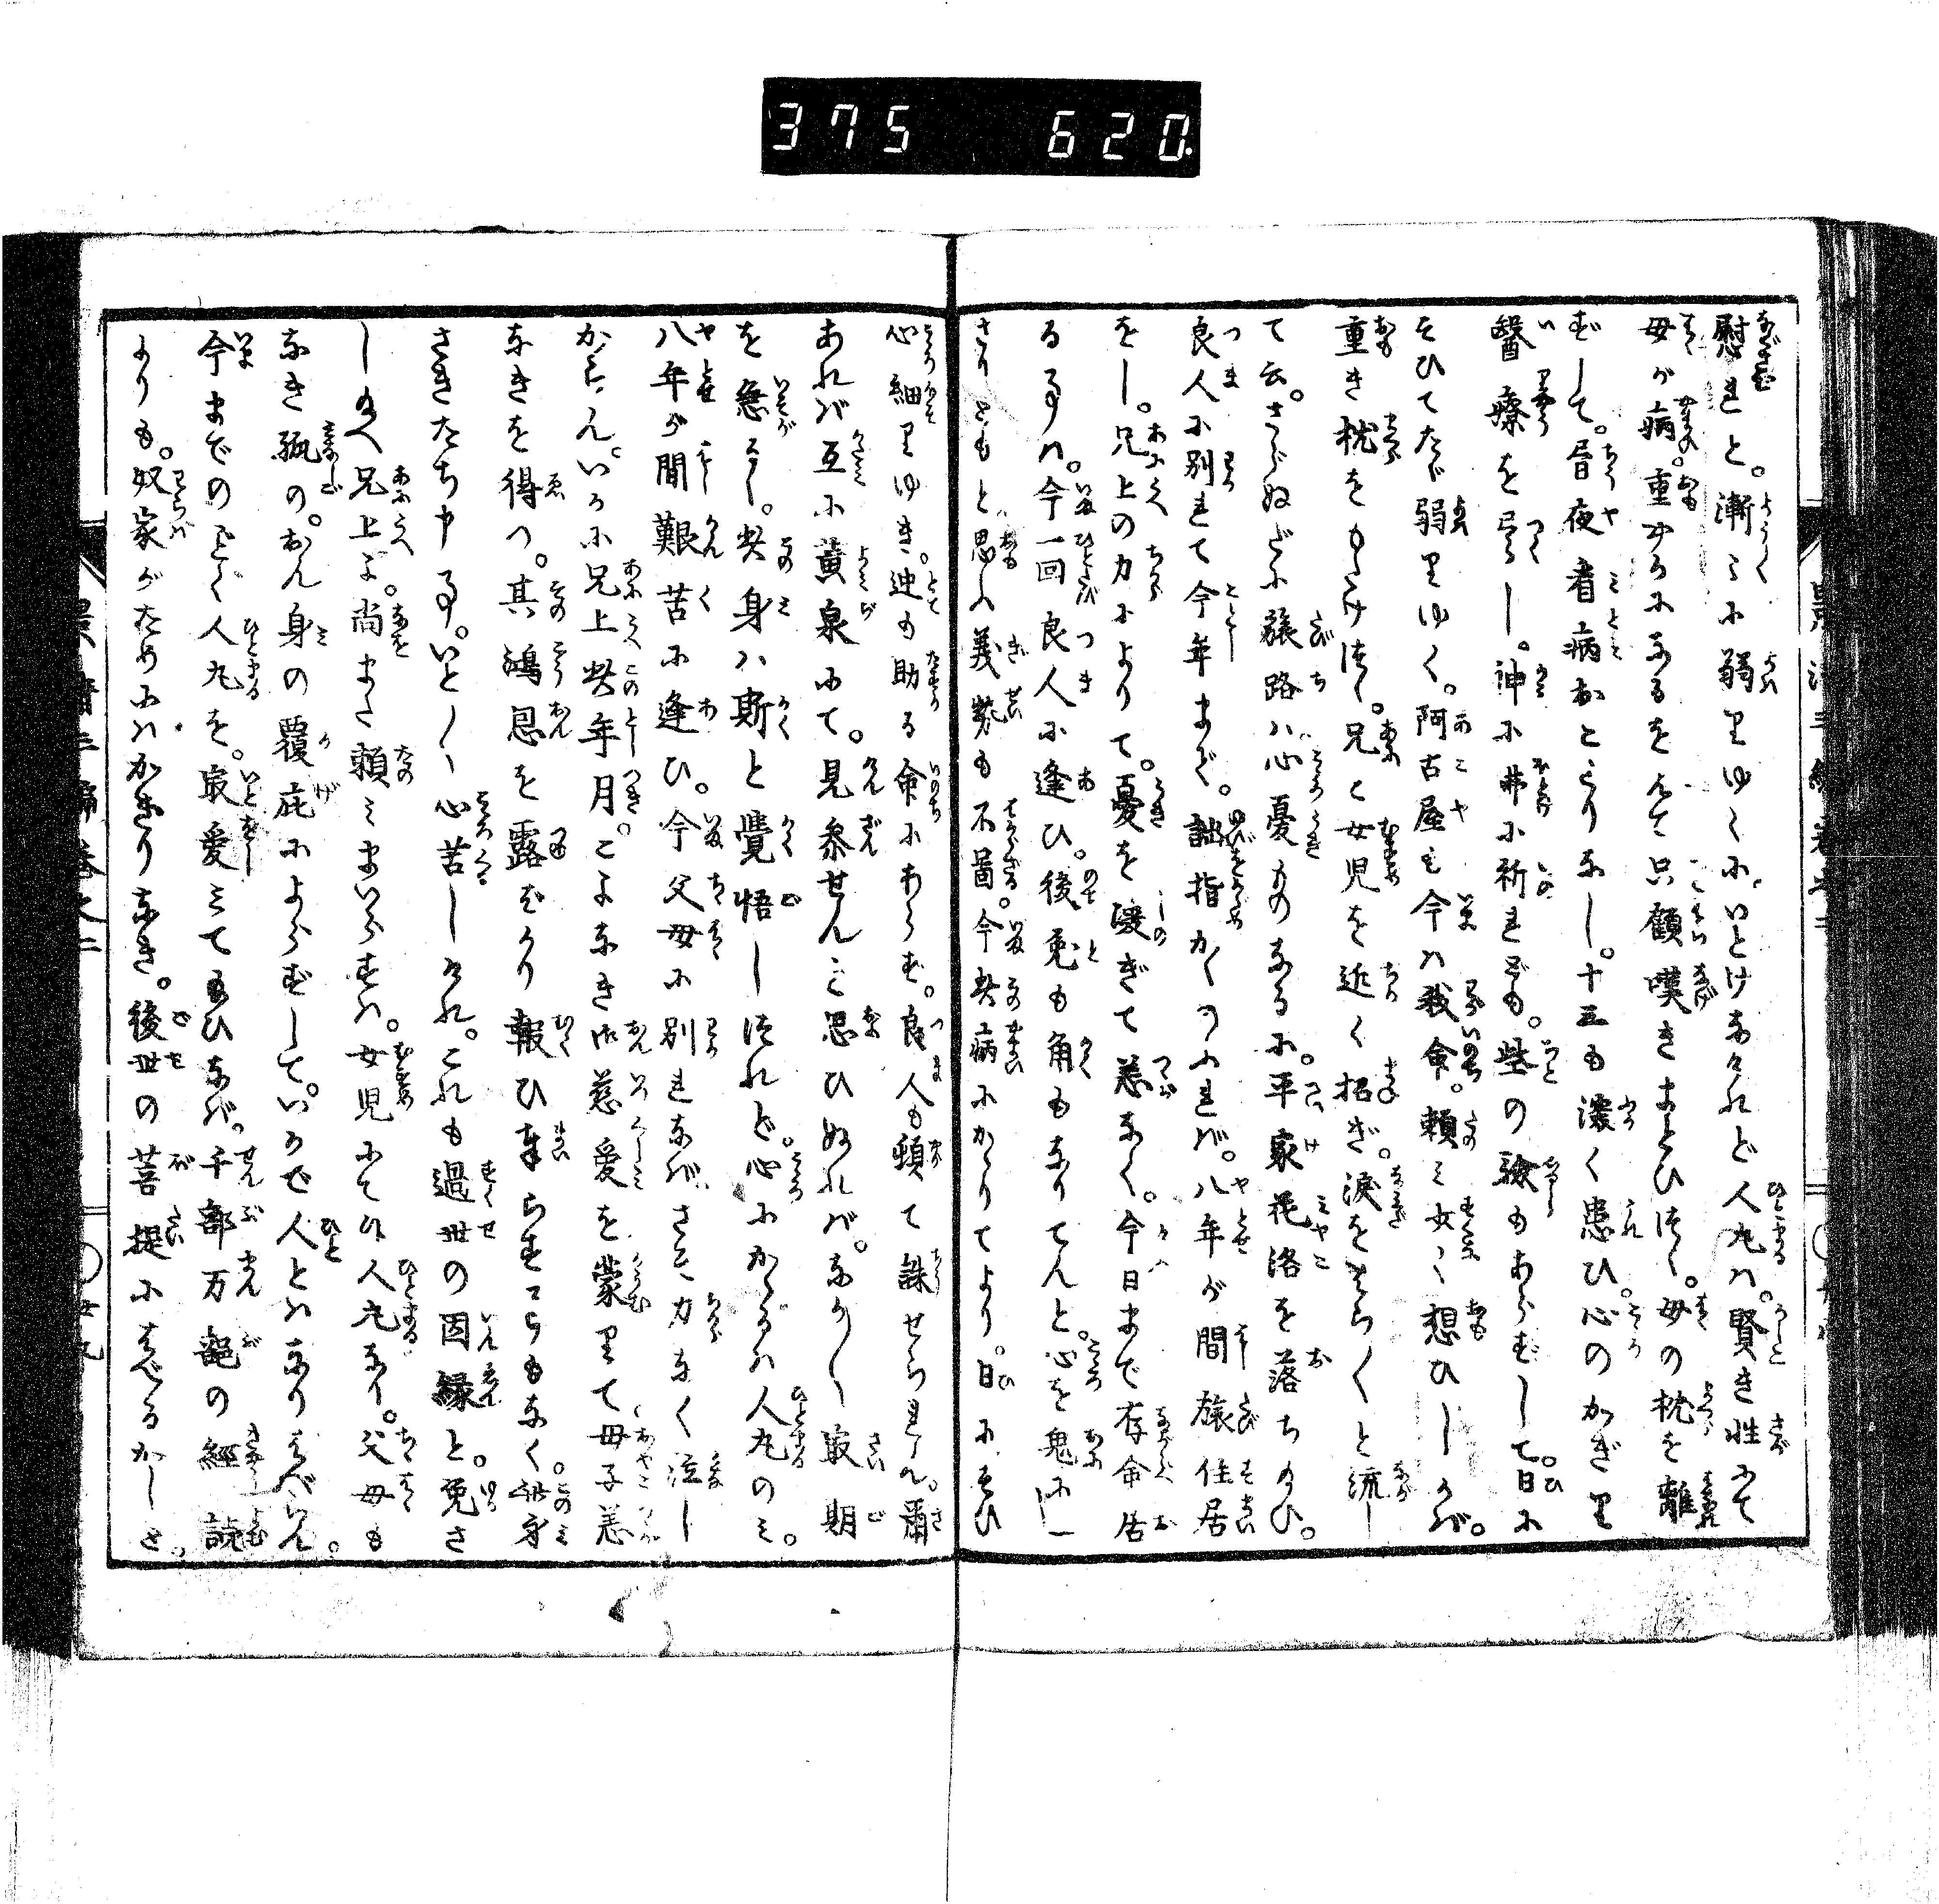 375 620
慰れど。漸々に弱りゆくに。いとけなけれど人丸ハ。賢き性にて
母が病。重やかになるを見て只顧嘆きまとひけり。母の枕を離
ずして。昼夜看病おこたりなし。十三も深く患ひ。心のかぎり
醫療を尽し。神に弗に祈れども。些の験もあらずして。日に
そひてただ弱りゆく。阿古屋も今ハ我命。頼み少く想ひしかば。
重き枕をもたげつゝ。兄と女児を近く招ぎ。涙をはら〳〵と流し
て云。さらぬだに旅路ハ心憂ものなるに。平家花洛を落ち給ひ。
良人に別れて今年まで。詘指かゞなふれば。八年が間旅住居
をし。兄上の力によりて。憂を凌ぎて恙なく。今日まで存命居
る事ハ。今一回良人に逢ひ。後兎も角もなりてんと。心を鬼に一
さりともと思へ義勢も不啚。今此病にかゝりてより。日にそひ
心細りゆき。迚も助る命にあらず。良人も頓て誅せられん。爾
あれバ互に黄泉にて。見参せんと思ひぬれバ。なか〳〵最期
を急ぐ。此身ハ斯と覺悟しつれど。心にかゝるハ人丸のミ。
八年が間艱苦に逢ひ。今父母に別れなバ。さこそ力なく泣し
からん。いかに兄上此年月。こよなき御慈愛を蒙りて母子恙
なきを得つ。其鴻恩を露ばかり報ひ奉らずことゝもなく此身
さきたち申す事。いと〳〵心苦しけれ。これも過世の因縁と。免さ
し給へ兄上よ。尚また頼ミまいらすハ。女児にて候人丸なり。父母も
なき孤の。おん身の覆庇によらずして。いかで人とハなり侍べらん。
今までのごとく人丸を。最愛ミて給ひなば。千部万部の經読
よりも。奴家がためにハかぎりなき。後世の菩提に侍べるかしと。